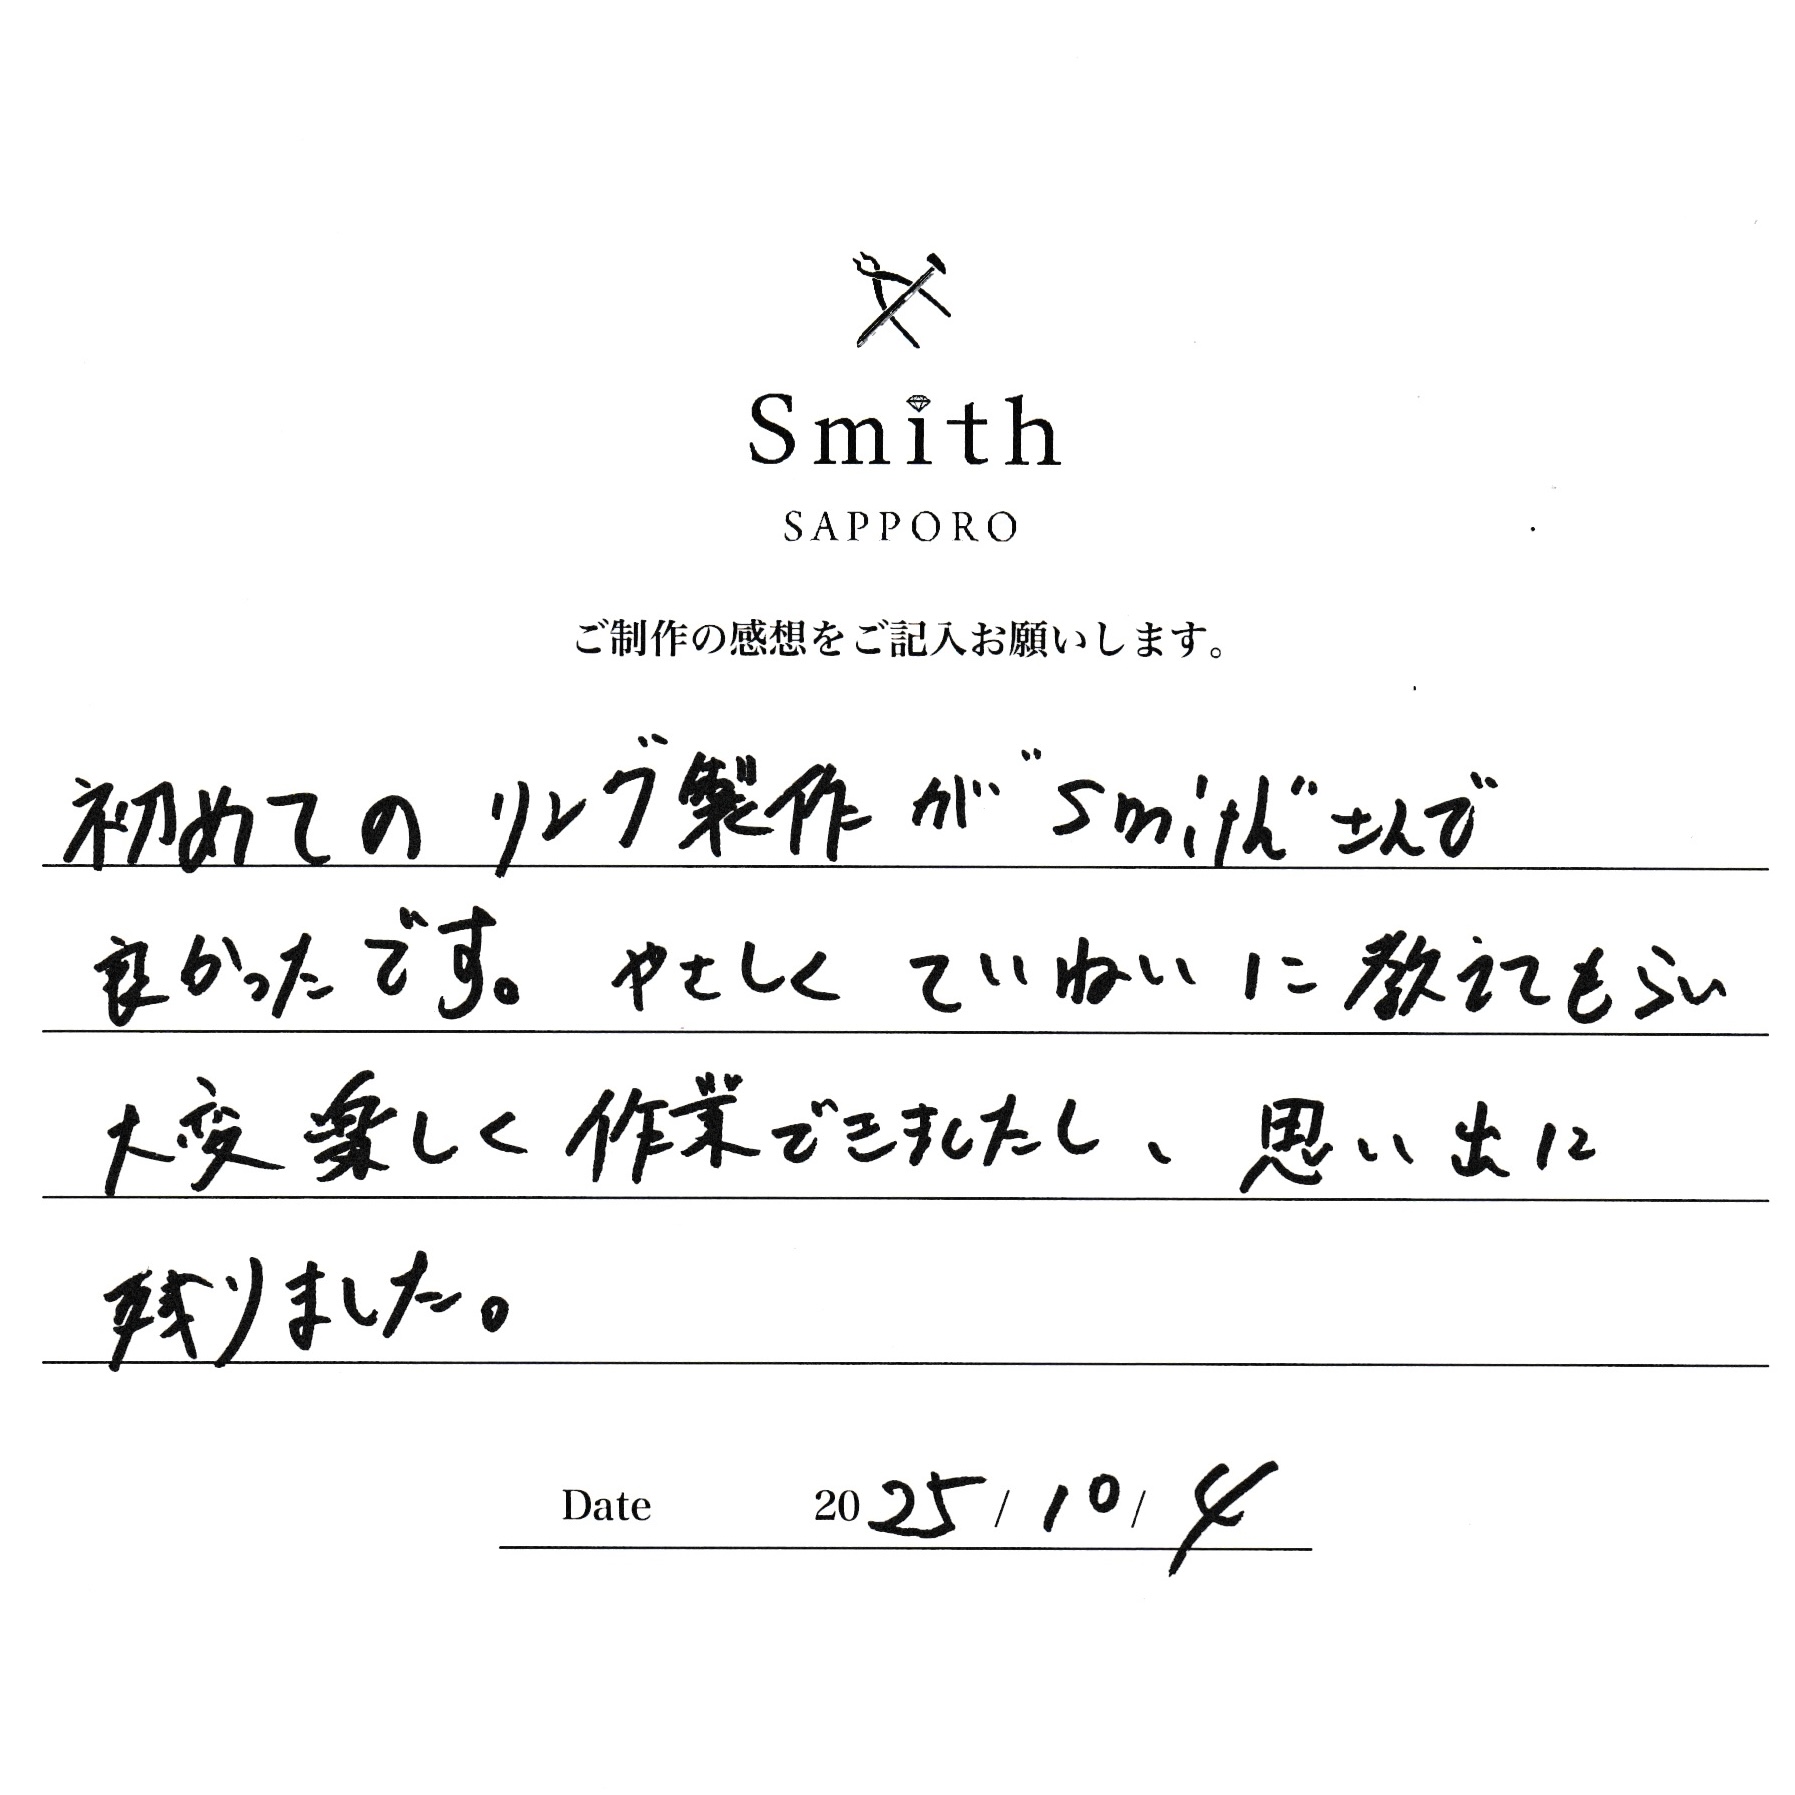 Smith
SAPPORO
ご制作の感想をご記入お願いします。
初めてのリング製作が"smith"さんで
良かったです。やさしくていねいに教えてもらい
大変楽しく作業できましたし、思い出に
残りました。
Date 2025/10/4